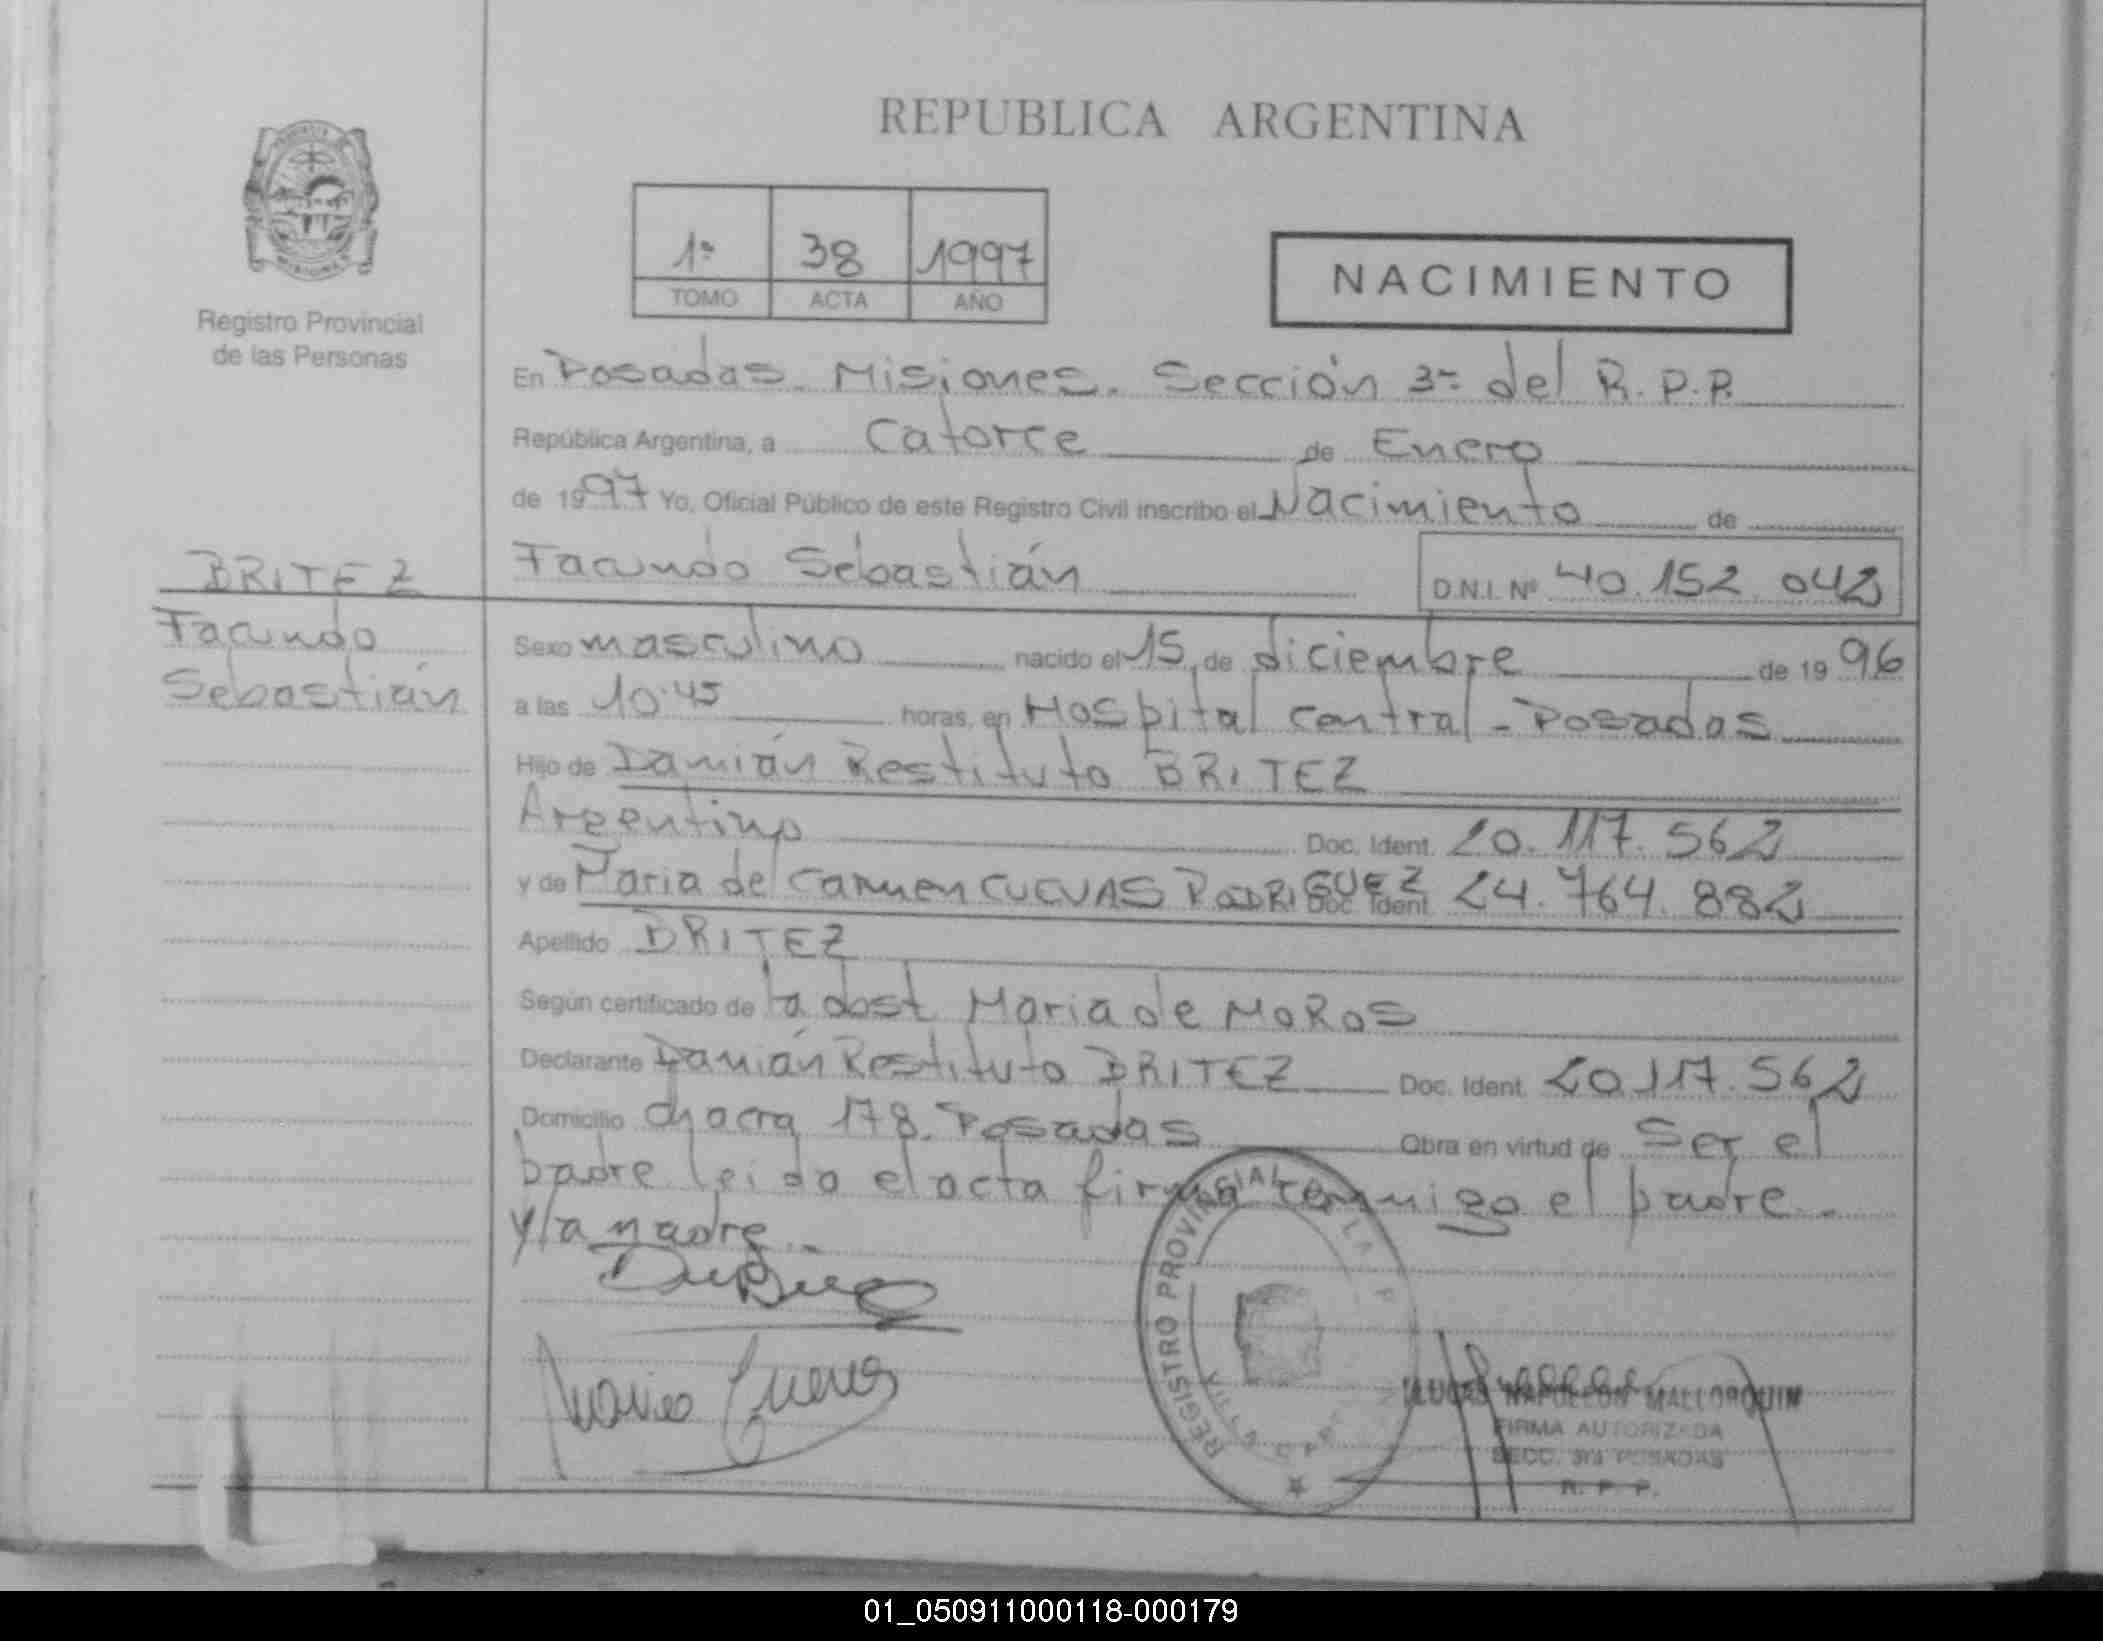 REPUBLICA ARGENTINA
1º 38 1997
TOMO ACTA AÑO
NACIMIENTO
Registro Provincial
de las Personas
En Posadas. Misiones. Sección 3ª del R.P.P.
República Argentina, a Catorce de Enero
de 1997 Yo, Oficial Público de este Registro Civil inscribo el Nacimiento de
Facundo Sebastián D.N.I. Nº 40.152.042
BRITEZ
Facundo
Sebastián
Sexo masculino nacido el 15 de diciembre de 1996
a las 10.45 horas, en Hospital central - Posadas
Hijo de Damián Restituto BRITEZ
Argentino Doc. Ident. 20.117.562
y de Maria del Carmen CUEVAS RODRIGUEZ Doc. Ident. 24.764.882
Apellido BRITEZ
Según certificado de la obst Maria de MOROS
Declarante Damián Restituto BRITEZ Doc. Ident. 20.117.562
Domicilio chacra 178. Posadas Obra en virtud de Ser el
padre leido el acta firma conmigo el padre
y la madre.
REGISTRO PROVINCIAL DE LAS P
LUCAS NAPOLEON MALLORQUIN
FIRMA AUTORIZADA
SECC. 3ra POSADAS
R. P. P.
01_050911000118-000179